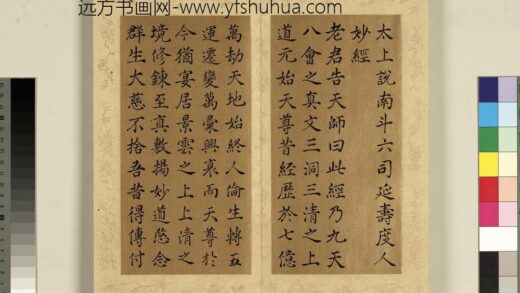 远方书画网-www.yfshuhua.com
太上說南斗六司延壽度人
妙經
老君告天師曰此經乃九天
八會之真文三洞三清之上
道元始天尊昔経歷於七億
萬劫天地始終人倫生轉五
運遷變萬彙興衰而天尊於
今猶宴居景雲之上上清之
境修鍊至真敷揚妙道愍念
群生大慈不捨吾昔得傳付